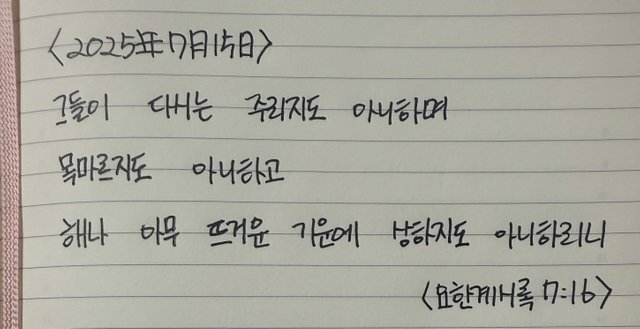 <2025年 7月 15日>
그들이 다시는 주리지도 아니하며
목마르지도 아니하고
해나 아무 뜨거운 기운에 상하지도 아니하리니
<요한계시록 7:16>